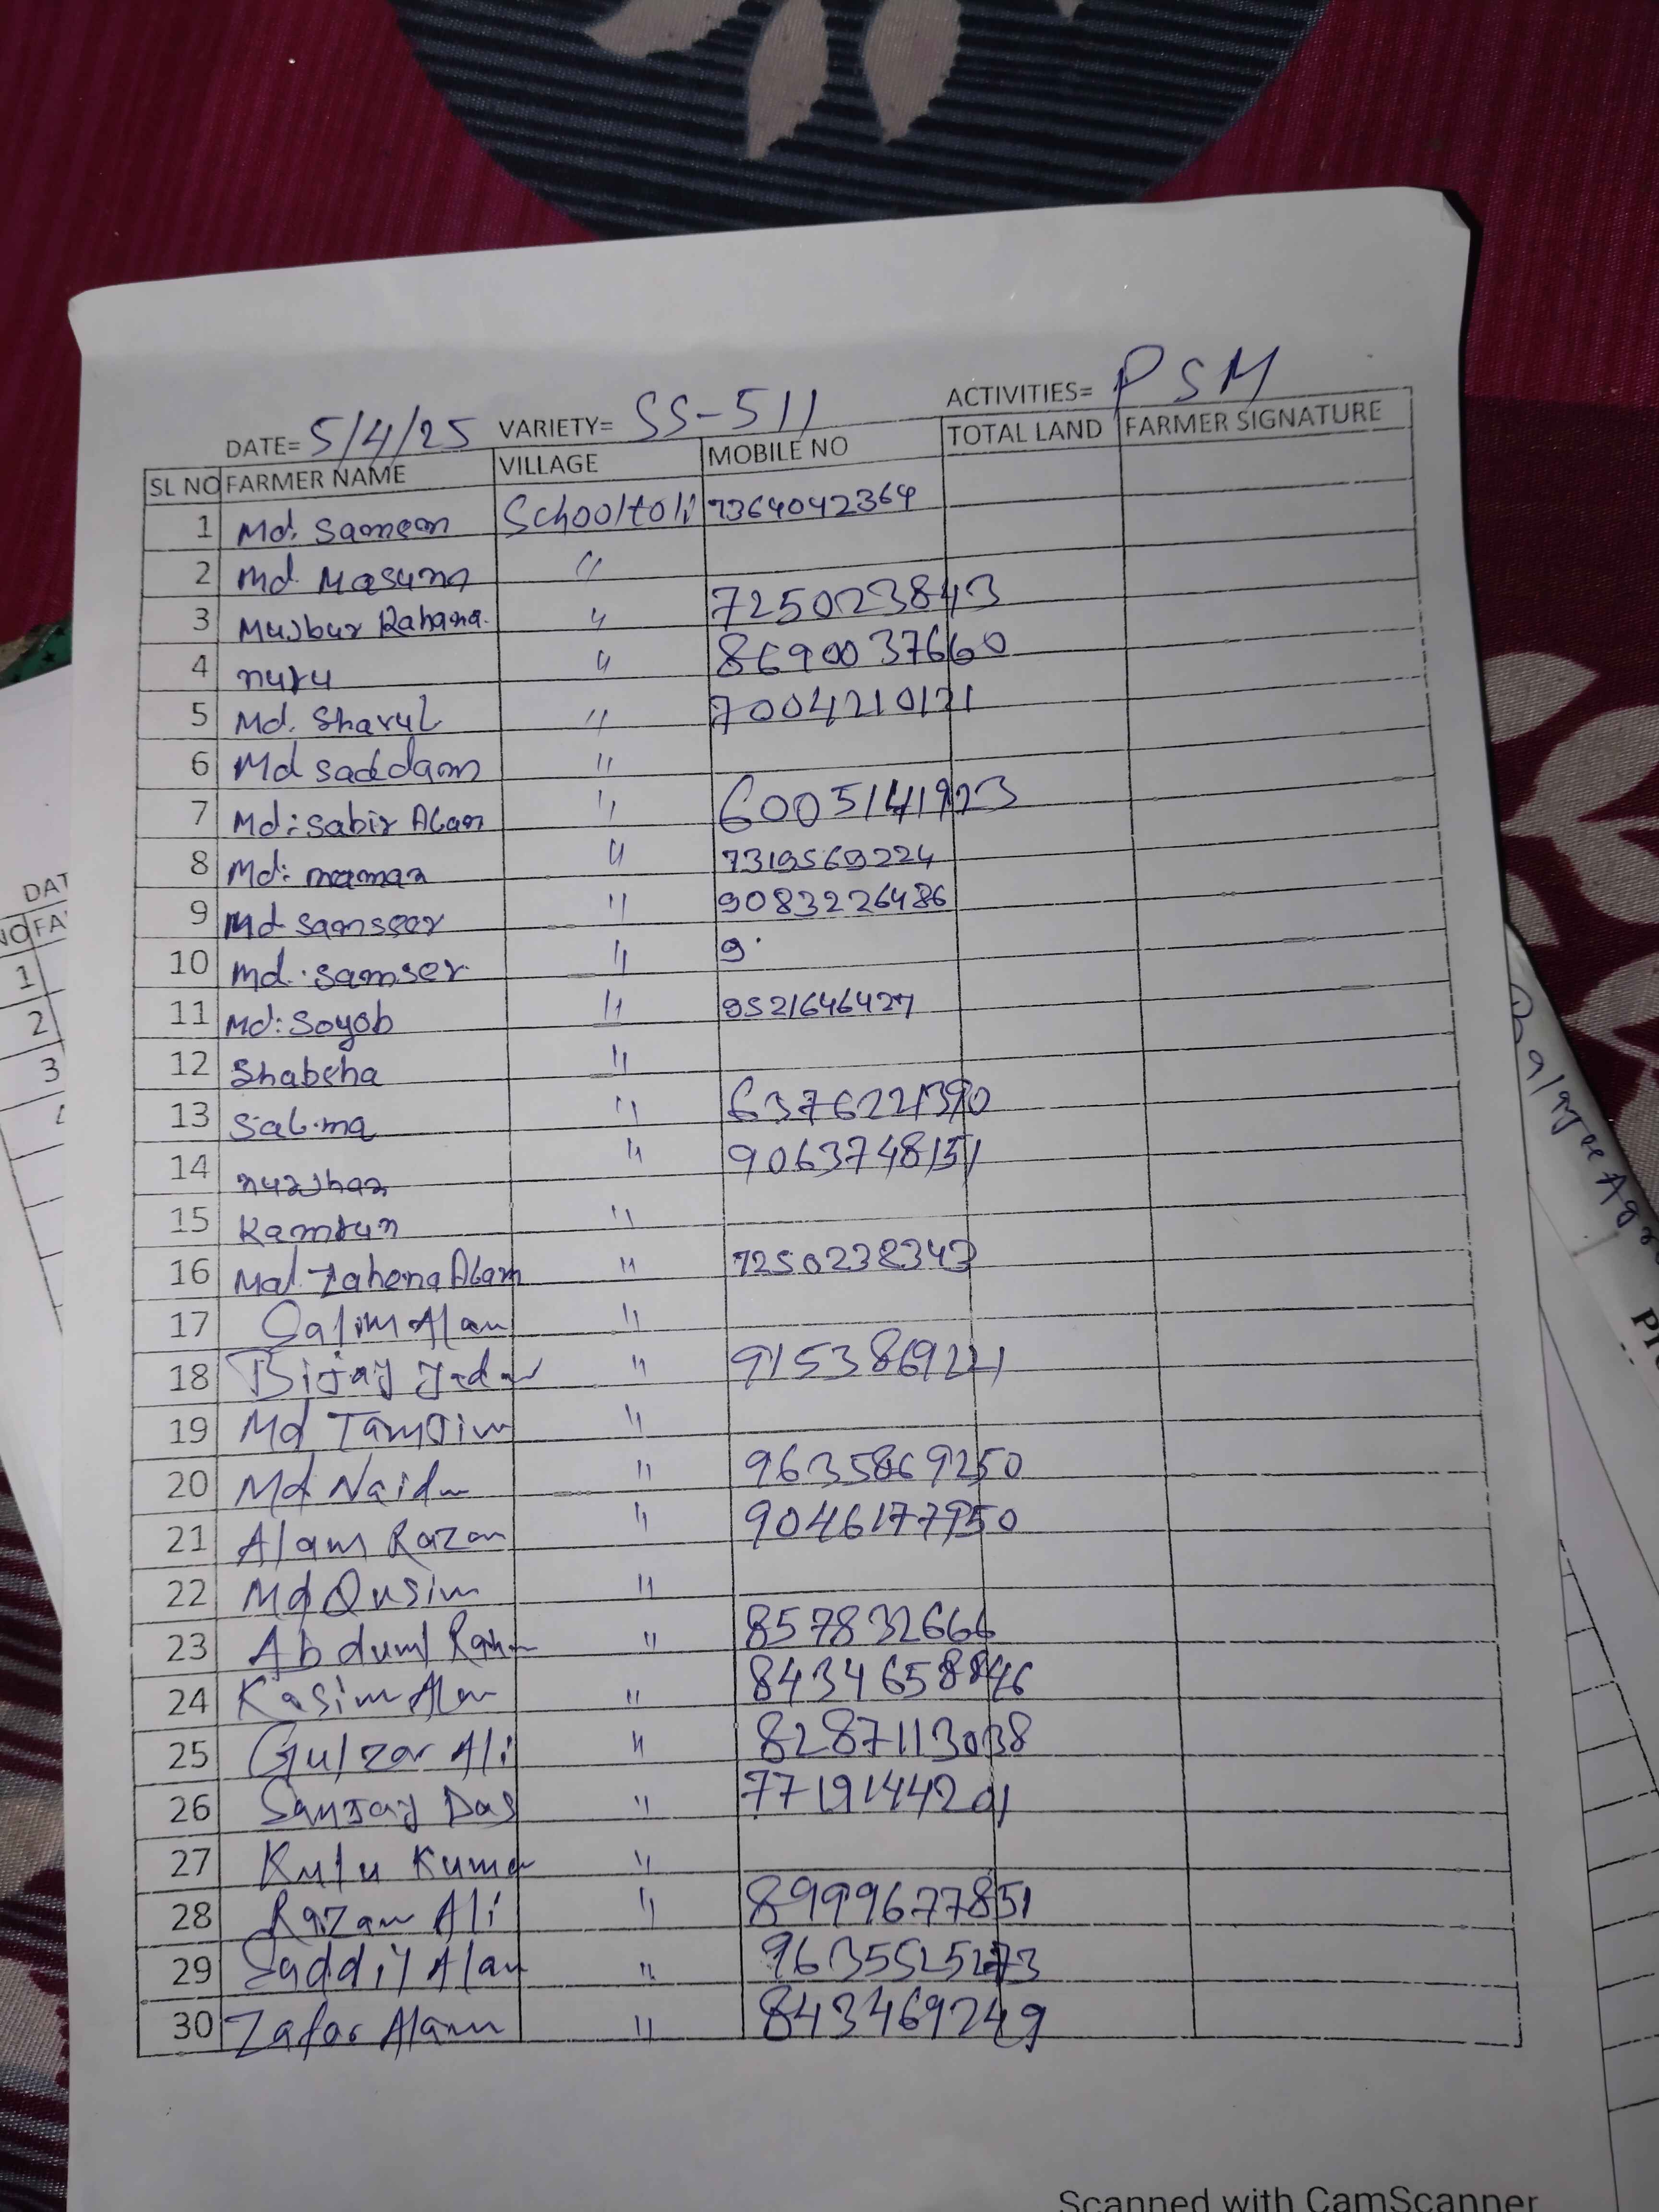 DATE= 5/4/25 VARIETY= SS-511 ACTIVITIES= PSM
SL NO FARMER NAME VILLAGE MOBILE NO TOTAL LAND FARMER SIGNATURE
1 Md. Sameem Schooltoli 7364042364
2 Md Masumn "
3 Mujbur Rahana. " 725023843
4 nuru " 8690037660
5 Md. Sharul " 7004210121
6 Md saddam "
7 Md: Sabir Alam " 6005141923
8 Md: maman " 7319569224
9 Md samseer " 9083226486
10 Md. samser. " 9.
11 Md: Soyeb " 9521646427
12 Shabeha "
13 Salima " 6376221390
14 nurjhan " 9063748151
15 Kamrun "
16 Md Zahena Alam " 7250238343
17 Salim Alam "
18 Bijay Yadav " 9153869221
19 Md Tamjim "
20 Md Naidu " 9635869250
21 Alam Razan " 9046177950
22 Md Qusim "
23 Abdul Rahm " 857832666
24 Kasim Alam " 8434658846
25 Gulzar Ali " 8287113038
26 Sanjay Das " 7719144201
27 Kulu Kumar "
28 Razam Ali " 8999677851
29 Saddil Alam " 9635525273
30 Zafar Alam " 843469249
DAT
NO FA
1
2
3
Scanned with CamScanner